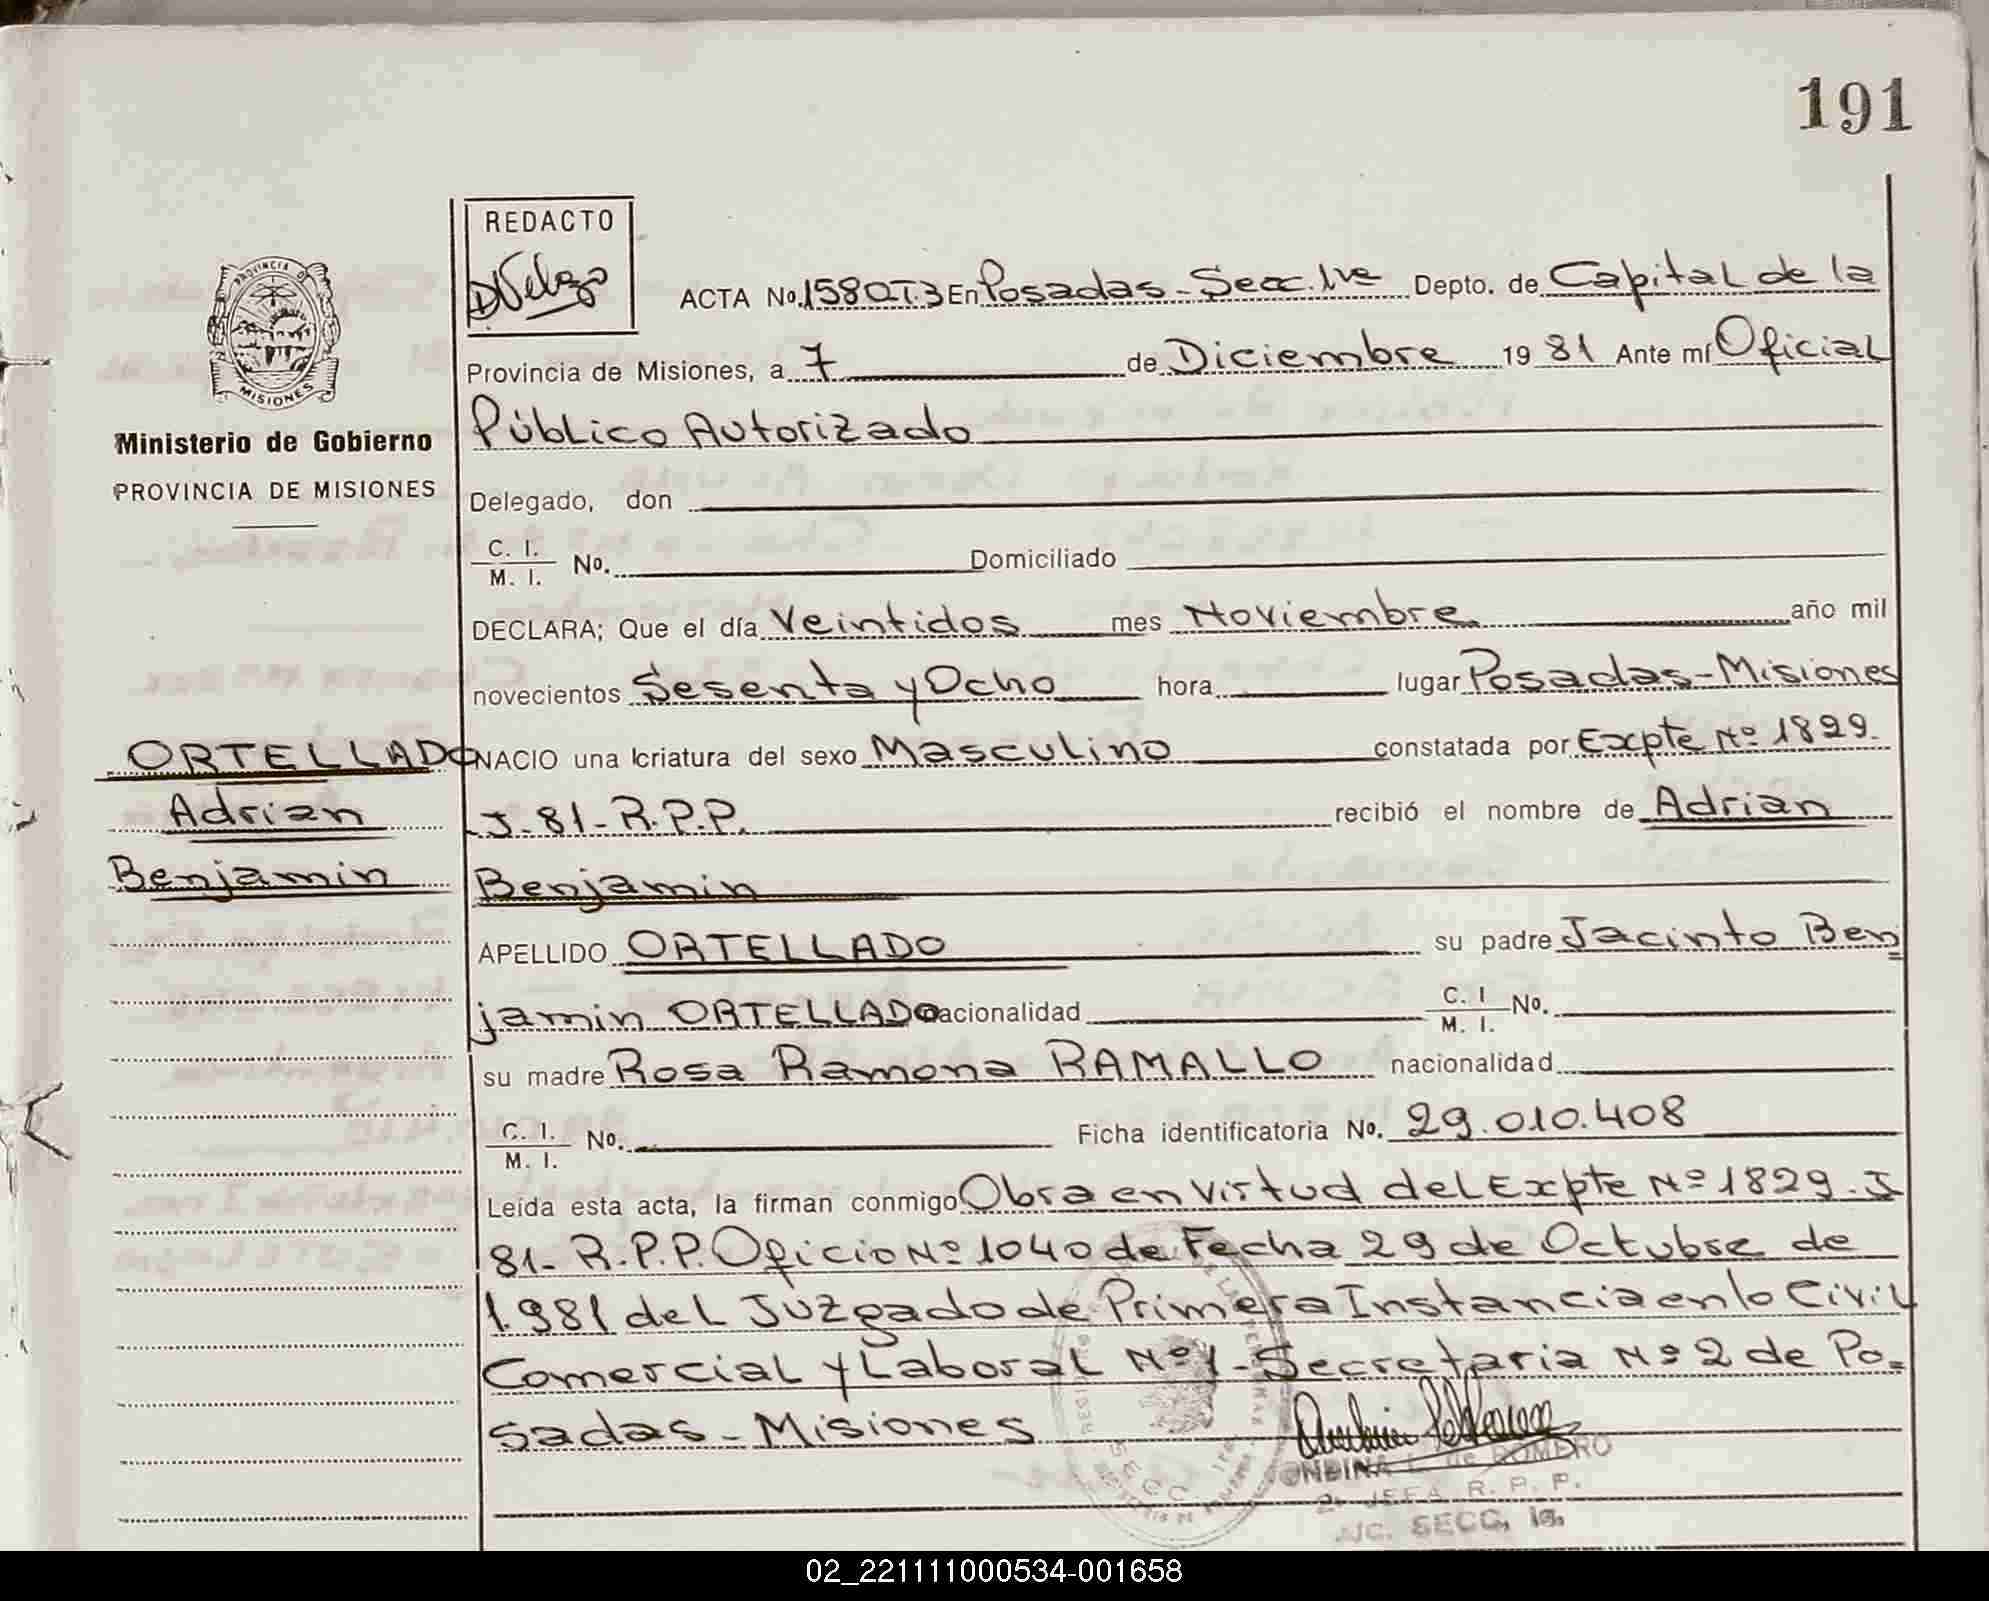 191
REDACTO
PROVINCIA DE
MISIONES
ACTA No. 1580 T.3 En Posadas - Secc. 1ra Depto. de Capital de la
Provincia de Misiones, a 7 de Diciembre 19 81 Ante mí Oficial
Ministerio de Gobierno
Público Autorizado
PROVINCIA DE MISIONES
Delegado, don
C. I.
M. I. No. Domiciliado
DECLARA; Que el día Veintidos mes Noviembre año mil
novecientos Sesenta y Ocho hora lugar Posadas - Misiones
ORTELLADO NACIO una criatura del sexo Masculino constatada por Excpte Nº 1829.
Adrian J-81-R.P.P. recibió el nombre de Adrian
Benjamin Benjamin
APELLIDO ORTELLADO su padre Jacinto Ben
jamin ORTELLADO nacionalidad C. I. M. I. No.
su madre Rosa Ramona RAMALLO nacionalidad
C. I. M. I. No. Ficha identificatoria No. 29.010.408
Leída esta acta, la firman conmigo Obra en virtud del Excpte Nº 1829. J
81- R.P.P. Oficio Nº 1040 de Fecha 29 de Octubre de
1.981 del Juzgado de Primera Instancia en lo Civil
Comercial y Laboral Nº 1 - Secretaria Nº 2 de Po=
sadas - Misiones
de ROMERO
2a JEFA R. P. P.
SECC. 1a.
02_221111000534-001658